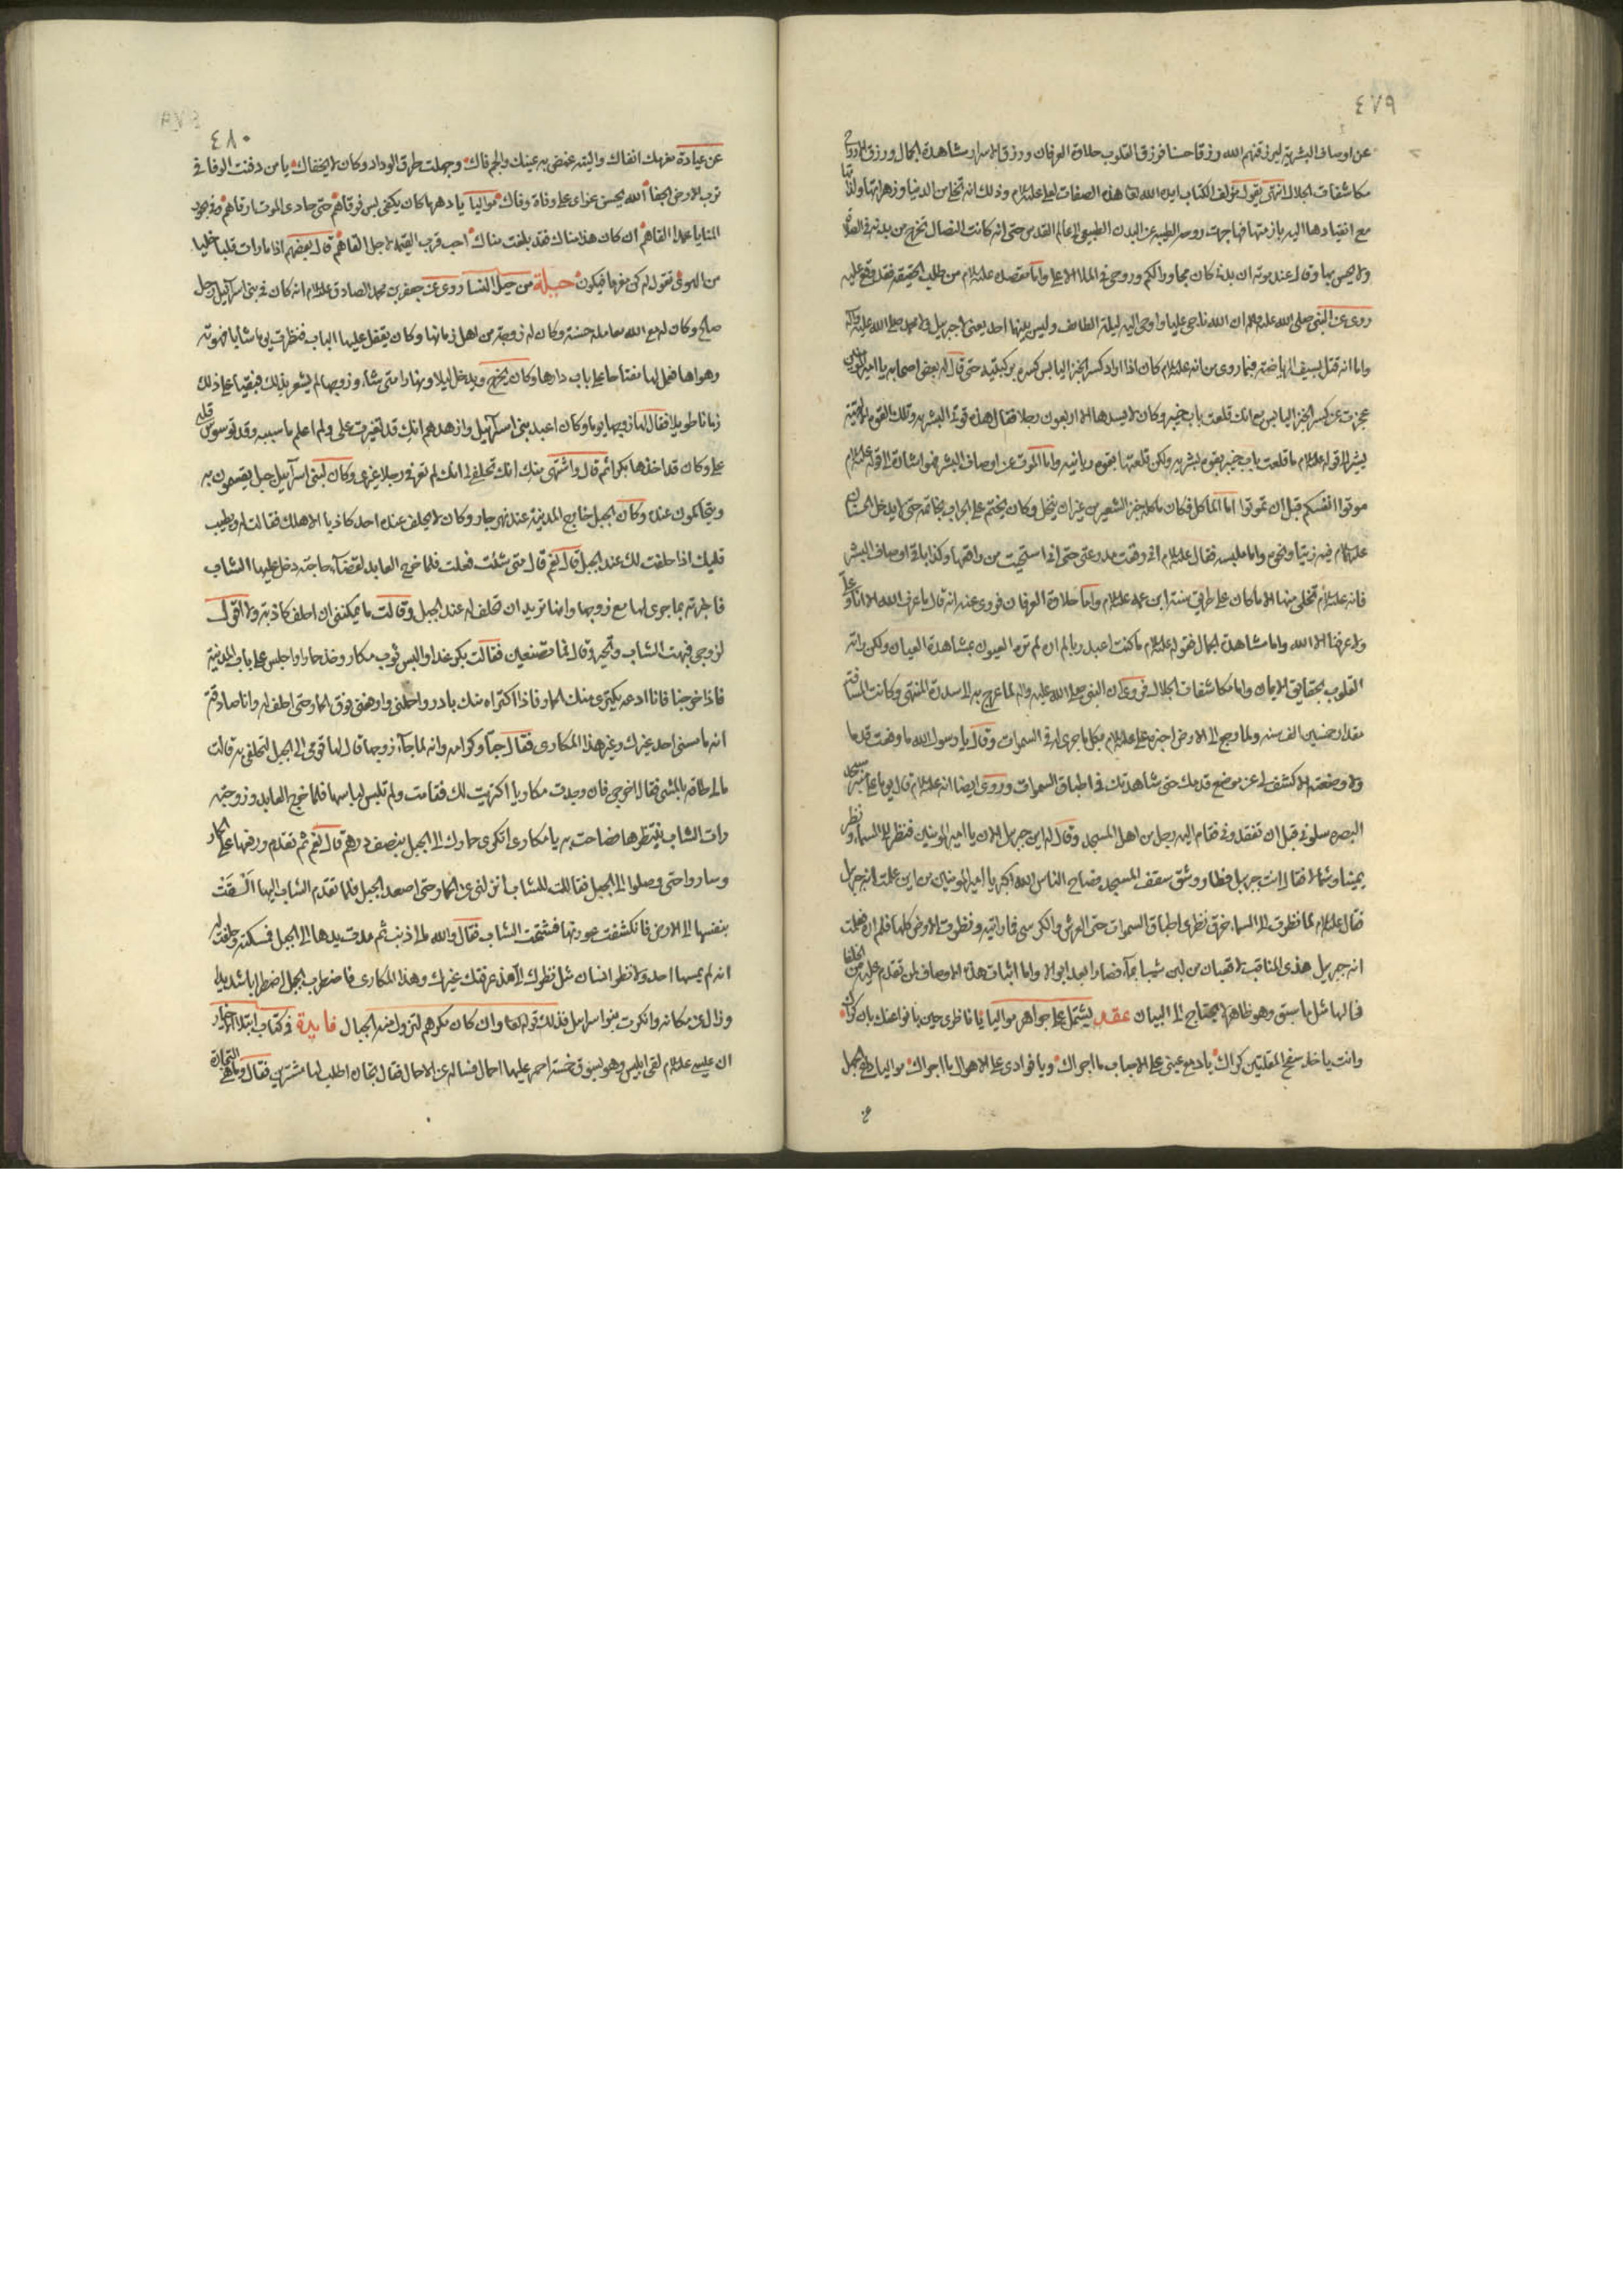 ٤٧٩
عن اوصاف البشريه ليرزقنهم الله رزقا حسنا فرزق القلوب حلاوة العرفان ورزق الاسرار مشاهدة الجمال ورزق الارواح
مكاشفات الجلال انتهى يقول مؤلف الكتاب ايده الله تعا هذه الصفات لعلى عليلام وذلك انه تخلى من الدنيا وزهراتها ولذاتها
مع انقيادها اليه بازمتها فهاجرت روحه الطيبه عن البدن الطبيعى الى عالم القدس حتى انه كانت النصال تخرج من بدنه فى الصلاة
ولا يحس بها وقال عند موته ان بدنى كان مجاورا لكم وروحى فى الملا الاعلى واما مقصده عليلام من طلب الحقيقه فقد وقع عليه
روى عن النبى صلى الله عليه واله ان الله ناجى عليا واوحى اليه ليلة الطائف وليس بينهما احد يعنى لا جبرئيل ولا محمد صلى الله عليه واله
واما انه قتل بسيف الرياضة فبما روى من انه عليلام كان اذا اراد كسر الخبز اليابس كسره بركبتيه حتى قال له بعض اصحابه يا امير المؤمنين
عجزت عن كسر الخبز اليابس مع انك قلعت باب خيبر وكان لا يسدها الا اربعون رجلا فقال هذه قوة البشريه وتلك القوه الالهية
يشير الى قوله عليلام ما قلعت باب خيبر بقوه بشريه ولكن قلعتها بقوه ربانيه واما الموت عن اوصاف البشر فهو اشارة الى قوله عليلام
موتوا انفسكم قبل ان تموتوا اما الماكل فكان ماكله خبز الشعير من غير ان ينخل وكان يختم على الجراب بخاتمه حتى لا يدخل الحسنان
عليهلام فيه زيتا ونحوه واما ملبسه فقال عليلام انى رقعت مدرعتى حتى انى استحييت من راقعها وكذا باقى اوصاف البشر
فانه عليلام تخلى منها الا ما كان على طريق سنة ابن عمه عليلام واما حلاوة العرفان فروى عنه انه قال ما عرف الله الا انا وعلى
ولا عرفنا الا الله واما مشاهدة الجمال فقوله عليلام ما كنت اعبد ربا لم اره لم تره العيون بمشاهدة العيان ولكن راته
القلوب بحقايق الايمان واما مكاشفات الجلال فروى ان النبى صلى الله عليه واله لما عرج به الى سدرة المنتهى وكانت المسافة
مقدار خمسين الف سنه ولما رجع الى الارض اخبره على عليلام بكل ما جرى له فى السموات وقال يا رسول الله ما رفعت قدما
ولا وضعته الا كشف لى عن موضع قدمك حتى شاهدتك فى اطباق السموات وروى ايضا انه عليلام قال يوما على منبر مسجد
البصره سلونى قبل ان تفقدونى فقام اليه رجل من اهل المسجد وقال له اين جبريل الان يا امير المؤمنين فنظر الى السماء ونظر
يمينا وشمالا فقال انت جبريل فطار وشق سقف المسجد فصاح الناس الله اكبر يا امير المؤمنين من اين علمت انه جبريل
فقال عليلام لما نظرت الى السماء خرق نظرى اطباق السموات حتى العرش والكرسى فما رايته ونظرت الارض كلها فلم اره فعلمت
انه جبريل هذى المناقب لا قعبان من لبن شيبا بماء فعادا بعد ابوالا واما اثبات هذه الاوصاف لمن تقدم عليه من الخلفا
فحالها مثل ما سبق وهو ظاهر لا يحتاج الى البيان عقد يشتمل على جواهر مواليا يا ناظرى حين يا فواعنك بان كراك
وانت يا خد سفح المقلتين كراك يا دمع عينى على الاحباب ما اجراك ويا فوادى على الاهوال ما اجراك مواليا يا طى الجبل
٤٨٠
عن عيادة مغرمك انفاك واليته غضى به عينيك والجرفاك وجملت طرق الوداد وكان لا يخفاك يا من دفنت الوفا فى
ترب الارض الجفا الله يحسن عزاى على وفاة وفاك مواليا يا دهر ما كان يكفى بس فرقاهم حتى حادى الموت ارقاهم وفى بحور
المنايا عمدا القاهم ان كان هذا مناك فقد بلغت مناك احب قرب القيمه لاجل القاهم قال بعضهم اذا ما رات قلبا خليا
من الهوى تقول له كن مغرما فيكون حيلة من حيل النسا روى عن جعفر بن محمد الصادق عليلام انه كان فى بنى اسرائيل رجل
صالح وكان له مع الله معامله حسنة وكان له زوجة من اهل زمانها وكان يقفل عليها الباب فنظرت يوما شابا فهوته
وهواها فعمل لها مفتاحا على باب دارها وكان يخرج ويدخل ليلا ونهارا متى شاء وزوجها لم يشعر بذلك فبقيا على ذلك
زمانا طويلا فقال لها زوجها يوما وكان اعبد بنى اسرائيل وازهدهم انك قد تغيرت على ولم اعلم ما سببه وقد توسوس قلبى
على وكان قد اخذها بكرا ثم قال واشتهى منك انك تحلفى لى انك لم تعرفى رجلا غيرى وكان لبنى اسرآئيل جبل يقسمون به
ويتحاكمون عنده وكان الجبل خارج المدينة عنده نهر جار وكان لا يحلف عنده احد كاذبا الا هلك فقالت له ويطيب
قلبك اذا حلفت لك عند الجبل قال نعم قال متى شئت فعلت فلما خرج العابد لقضآء حاجته دخل عليها الشاب
فاخبرته بما جرى لها مع زوجها وانها تريد ان تحلف له عند الجبل وقالت ما يمكننى ان احلف كاذبة ولا اقول
لزوجى فبهت الشاب وتحير وقال فما تصنعين فقالت بكر غدا والبس ثوب مكار وخذ حمارا واجلس على باب المدينة
فاذا خرجنا فانا ادعه يكترى منك الحمار فاذا اكتراه منك بادر واحملنى وارفعنى فوق الحمار حتى احلف له وانا صادقة
انه ما مسنى احد غيرك وغير هذا المكارى فقال حبا وكرامه وانه لما جآء زوجها قال لها قومى الى الجبل لتحلفى به قالت
ما لى طاقه بالمشى فقال اخرجى فان وجدت مكاريا اكتريت لك فقامت ولم تلبس لباسها فلما خرج العابد وزوجته
رات الشاب ينتظرها فصاحت به يا مكارى اتكرى حمارك الى الجبل بنصف درهم قال نعم ثم تقدم ورفعها على الحمار
وساروا حتى وصلوا الى الجبل فقالت للشاب انزلنى عن الحمار حتى اصعد الجبل فلما تقدم الشاب اليها القت
بنفسها الى الارض فانكشفت عورتها فشتمت الشاب فقال والله لا لى ذنب ثم مدت يدها الى الجبل فمسكته وحلفت له
انه لم يمسها احد ولا نظر انسان مثل نظرك الى هذا مذ عرفتك غيرك وهذا المكارى فاضطرب الجبل اضطرابا شديدا
وزال عن مكانه وانكرت بنوا اسرائيل فذلك قوله تعا وان كان مكرهم لتزول منه الجبال فايدة فى كتاب ابتلاء الاخيار
ان عيسى عليلام لقى ابليس وهو يسوق خمسة احمره عليها احمال فساله عن الاحمال فقال تجاره اطلب لها مشترين فقال وما هى التجارة